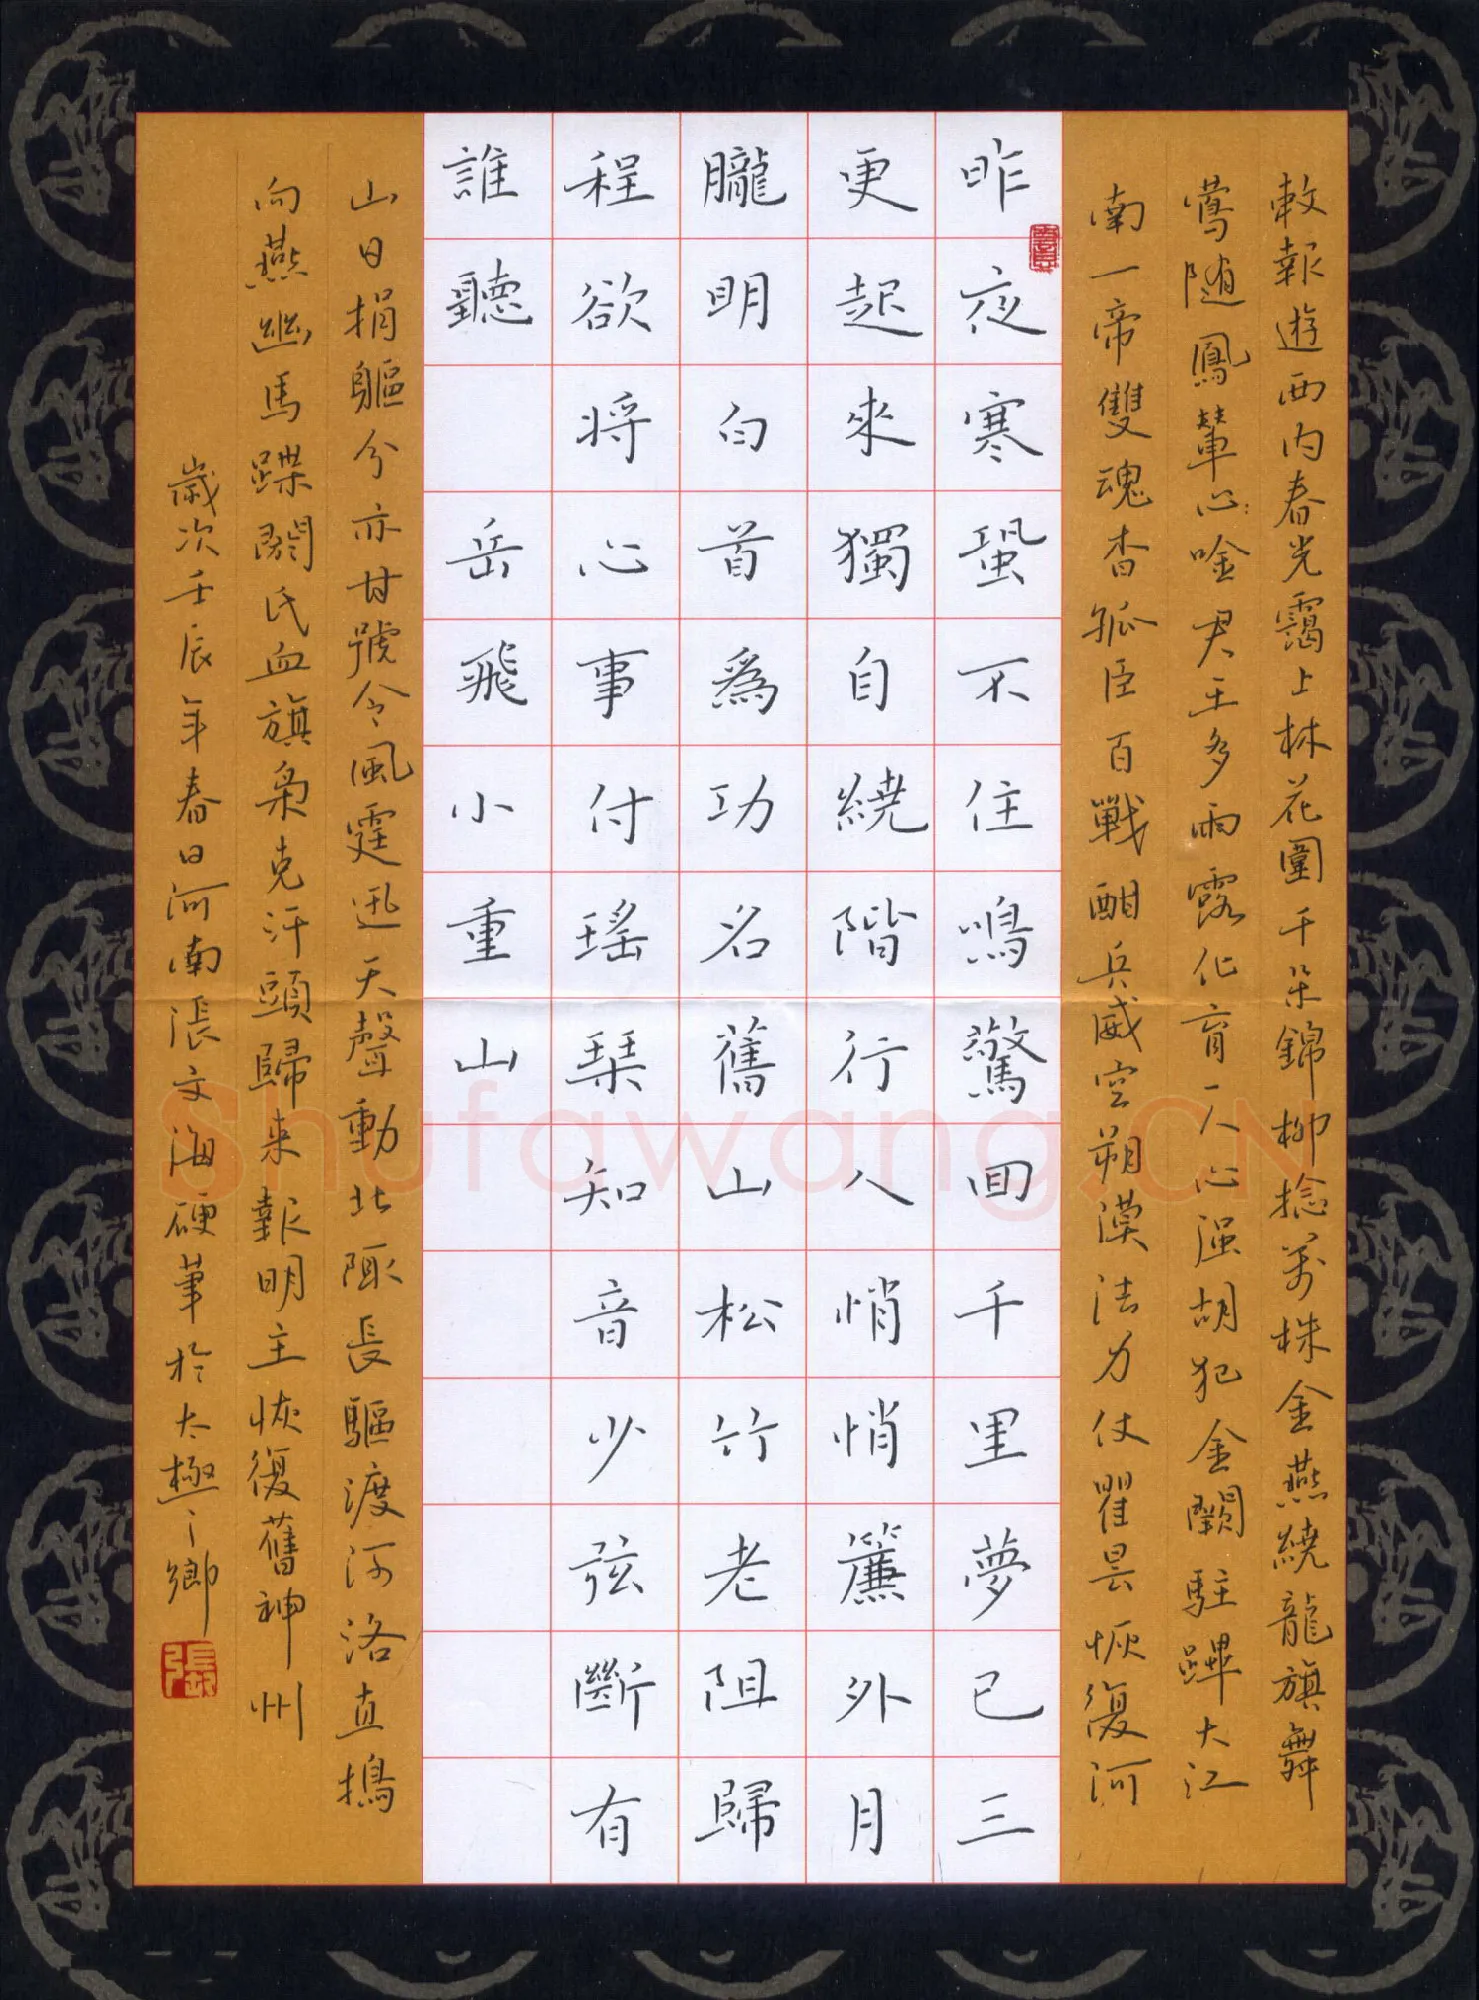 敕報遊西内春光靄上林花圍千朵錦柳捻萬株金燕繞龍旗舞
鶯随鳳輦心唫君王多雨露化育一人心强胡犯金闕駐蹕大江
南一帝雙魂杳孤臣百戰酣兵威空朔漠法力仗瞿曇恢復河
昨夜寒蛩不住鳴驚回千里夢已三
更起來獨自繞階行人悄悄簾外月
朧明白首爲功名舊山松竹老阻歸
程欲将心事付瑤琴知音少弦斷有
誰聽 岳飛小重山
山日捐軀分亦甘號令風霆迅天聲動北陬長驅渡河洛直搗
向燕幽馬蹀閼氏血旗梟克汗頭歸来報明主恢復舊神州
歲次壬辰年春日河南張文海硬筆於太極之鄉
張
Shufawang.CN